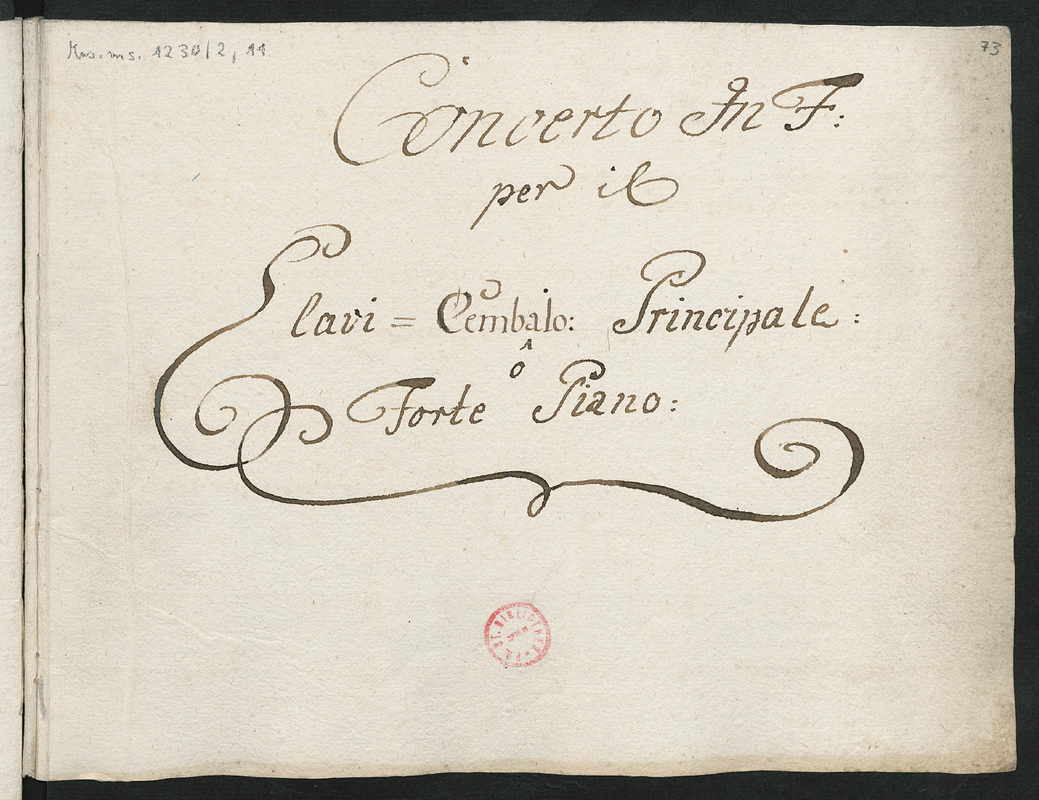 Mus. ms. 1230/2, 11.
73
Concerto In F:
per il
Clavi = Cembalo: Principale:
ô
Forte Piano: